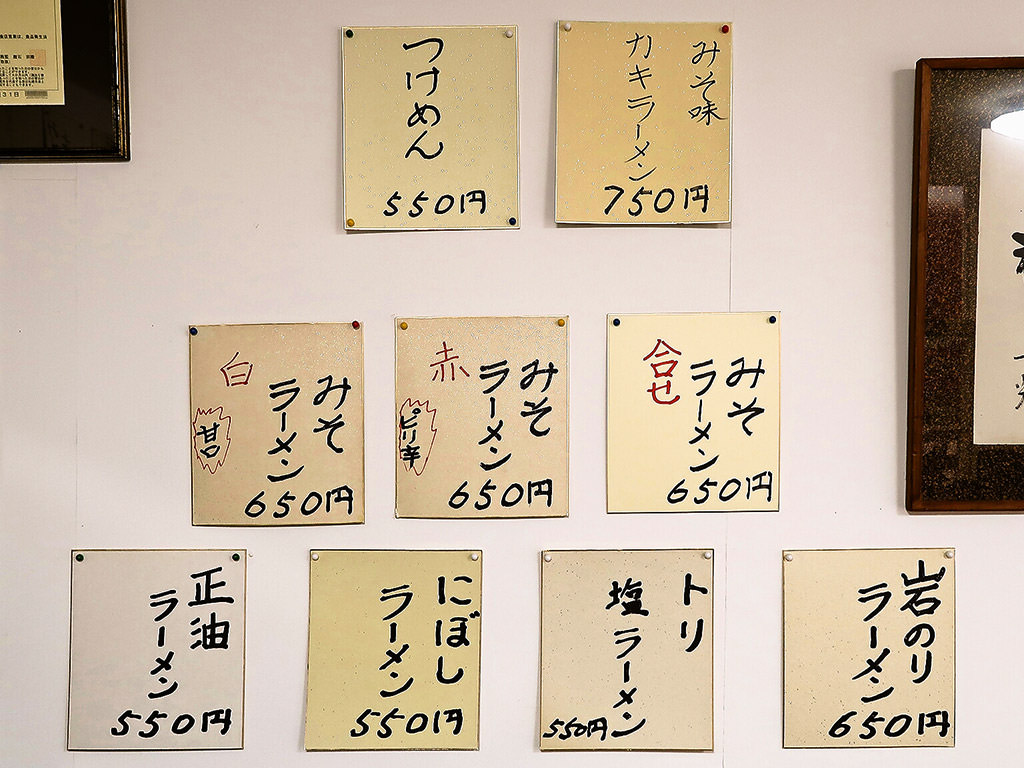 つけめん
550円
みそ味
カキラーメン
750円
みそ
ラーメン
白
甘口
650円
みそ
ラーメン
赤
ピリ辛
650円
みそ
ラーメン
合せ
650円
正油
ラーメン
550円
にぼし
ラーメン
550円
トリ
塩ラーメン
550円
岩のり
ラーメン
650円